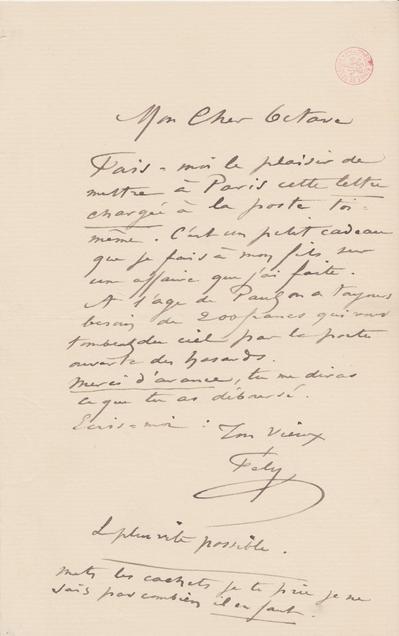 Mon Cher Octave
Fais-moi le plaisir de
mettre à Paris cette lettre
chargée à la poste toi-
même. C'est un petit cadeau
que je fais à mon fils sur
une affaire que j'ai faite.
A l'age de Paul on a toujours
besoin de 200 francs qui vous
tombent du ciel par la porte
ouverte des hasards.
Merci d'avance, tu me diras
ce que tu as déboursé.
Ecris-moi : Ton vieux
Fély
Le plus vite possible.
mets les cachets je te prie je ne
sais pas combien il en faut.